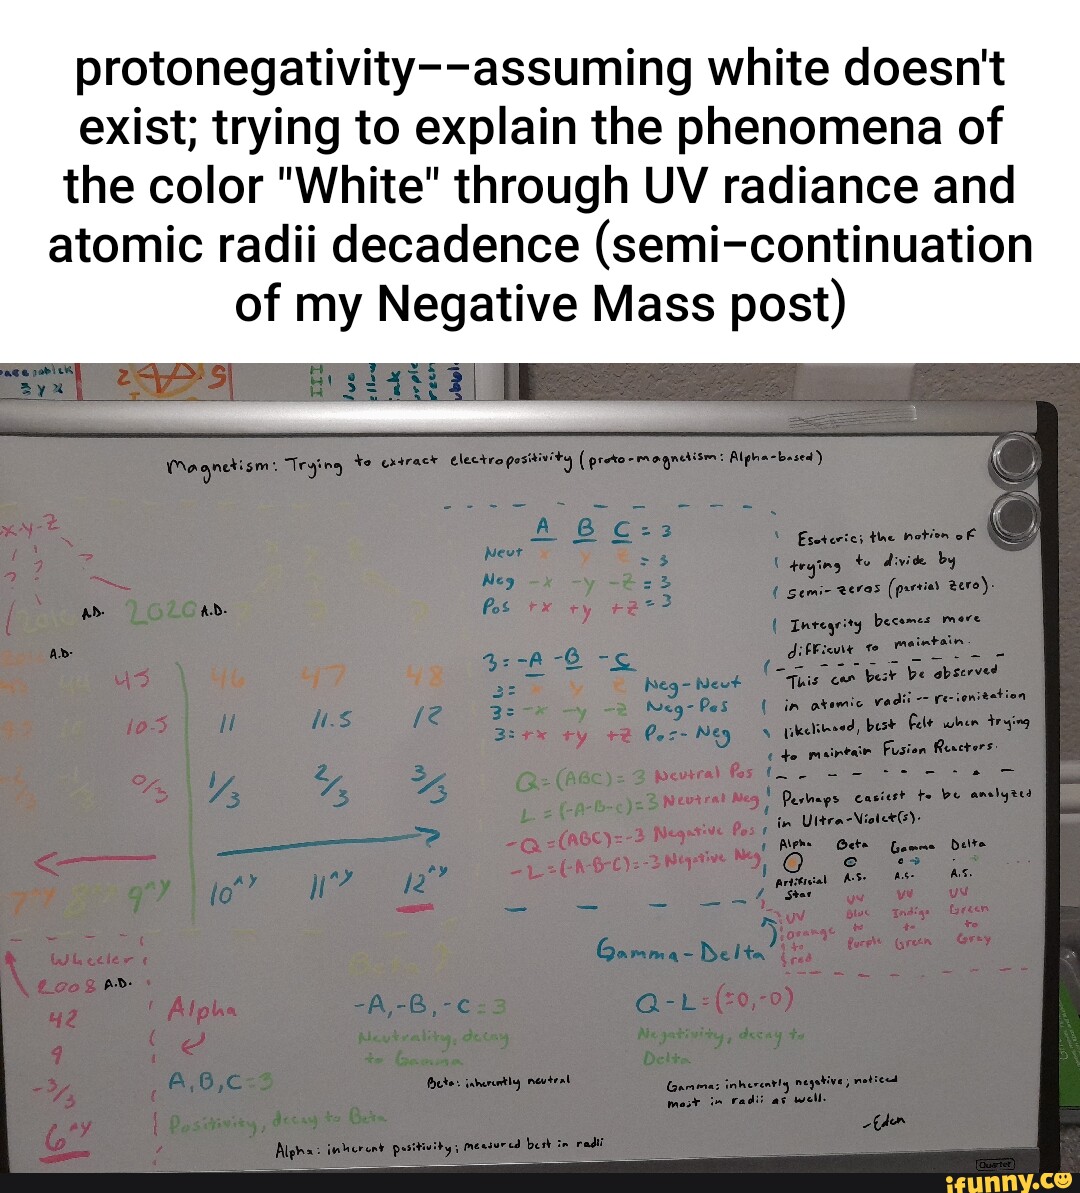 protonegativity--assuming white doesn't
exist; trying to explain the phenomena of
the color "White" through UV radiance and
atomic radii decadence (semi-continuation
of my Negative Mass post)
Magnetism: Trying to extract electropositivity (proto-magnetism: Alpha-based)
x-y-z
? ? ?
A.D. 2020 A.D.
A.D.
45 46 47 48
10.5 11 11.5 12
0/3 1/3 2/3 3/3
7^y 8 9^y 10^y 11^y 12^y
A B C = 3
Neut x y z = 3
Neg -x -y -z = 3
Pos +x +y +z = 3
3 = -A -B -C
3 = x y z Neg-Neut
3 = -x -y -z Neg-Pos
3 = +x +y +z Pos-Neg
Q = (ABC) = 3 Neutral Pos
L = (-A-B-C) = 3 Neutral Neg
-Q = (ABC) = -3 Negative Pos
-L = (-A-B-C) = -3 Negative Neg
Esoteric; the notion of
trying to divide by
semi-zeros (partial zero).
Integrity becomes more
difficult to maintain.
This can best be observed
in atomic radii -- re-ionization
likelihood, best felt when trying
to maintain Fusion Reactors.
Perhaps easiest to be analyzed
in Ultra-Violet(s).
Alpha Beta Gamma Delta
Artificial A.S. A.S. A.S.
Star
UV UV UV UV
Orange Blue Indigo Green
to to to to
red Purple Green Grey
Gamma-Delta
Wheeler
2008 A.D.
42
9
-3/3
6^y
Alpha
A, B, C = 3
Positivity, decay to Beta
Alpha: inherent positivity; measured best in radii
Beta ?
-A, -B, -C = 3
Neutrality, decay
to Gamma
Beta: inherently neutral
Q-L = (=0,-0)
Negativity, decay to
Delta
Gamma: inherently negative; noticed
most in radii as well.
-Eden
Quartet
ifunny.co